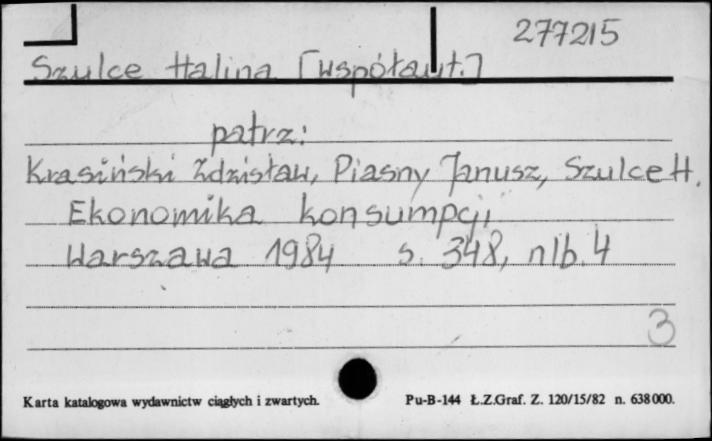 277215
Szulce Halina [współaut.]
patrz:
Krasiński Zdzisław, Piasny Janusz, Szulce H.
Ekonomika konsumpcji
Warszawa 1984 s. 348, nlb. 4
3
Karta katalogowa wydawnictw ciągłych i zwartych. Pu-B-144 Ł.Z.Graf. Z. 120/15/82 n. 638000.